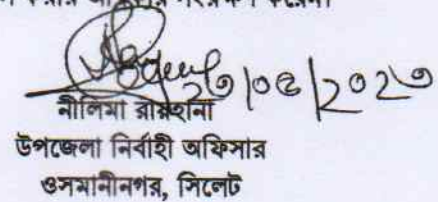 করার সংরক্ষণ করেন।
২৩/০৫/২০২৩
নীলিমা রায়হানা
উপজেলা নির্বাহী অফিসার
ওসমানীনগর, সিলেট